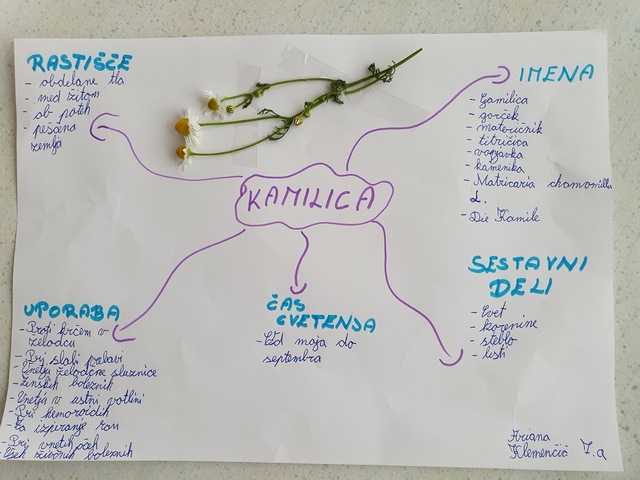 RASTIŠČE
- obdelane tla
- med žitom
- ob poteh
- peščena
zemlja
IMENA
- Gamilica
- gorček
- materičnik
- titričica
- kamenika
- Matricaria chamomilla
L.
- Die Kamile
KAMILICA
SESTAVNI
DELI
- Cvet
- korenine
- steblo
- listi
ČAS
CVETENJA
- Od maja do
septembra
UPORABA
- Proti krčem v
želodcu
- Pri slabi prebavi
- Vnetju želodčne sluznice
- Ženskih boleznih
- Vnetju v ustni votlini
- Pri hemoroidih
- Za izpiranje ran
- Pri vnetih očeh
boleznih
Ariana
Klemenčič 7.a